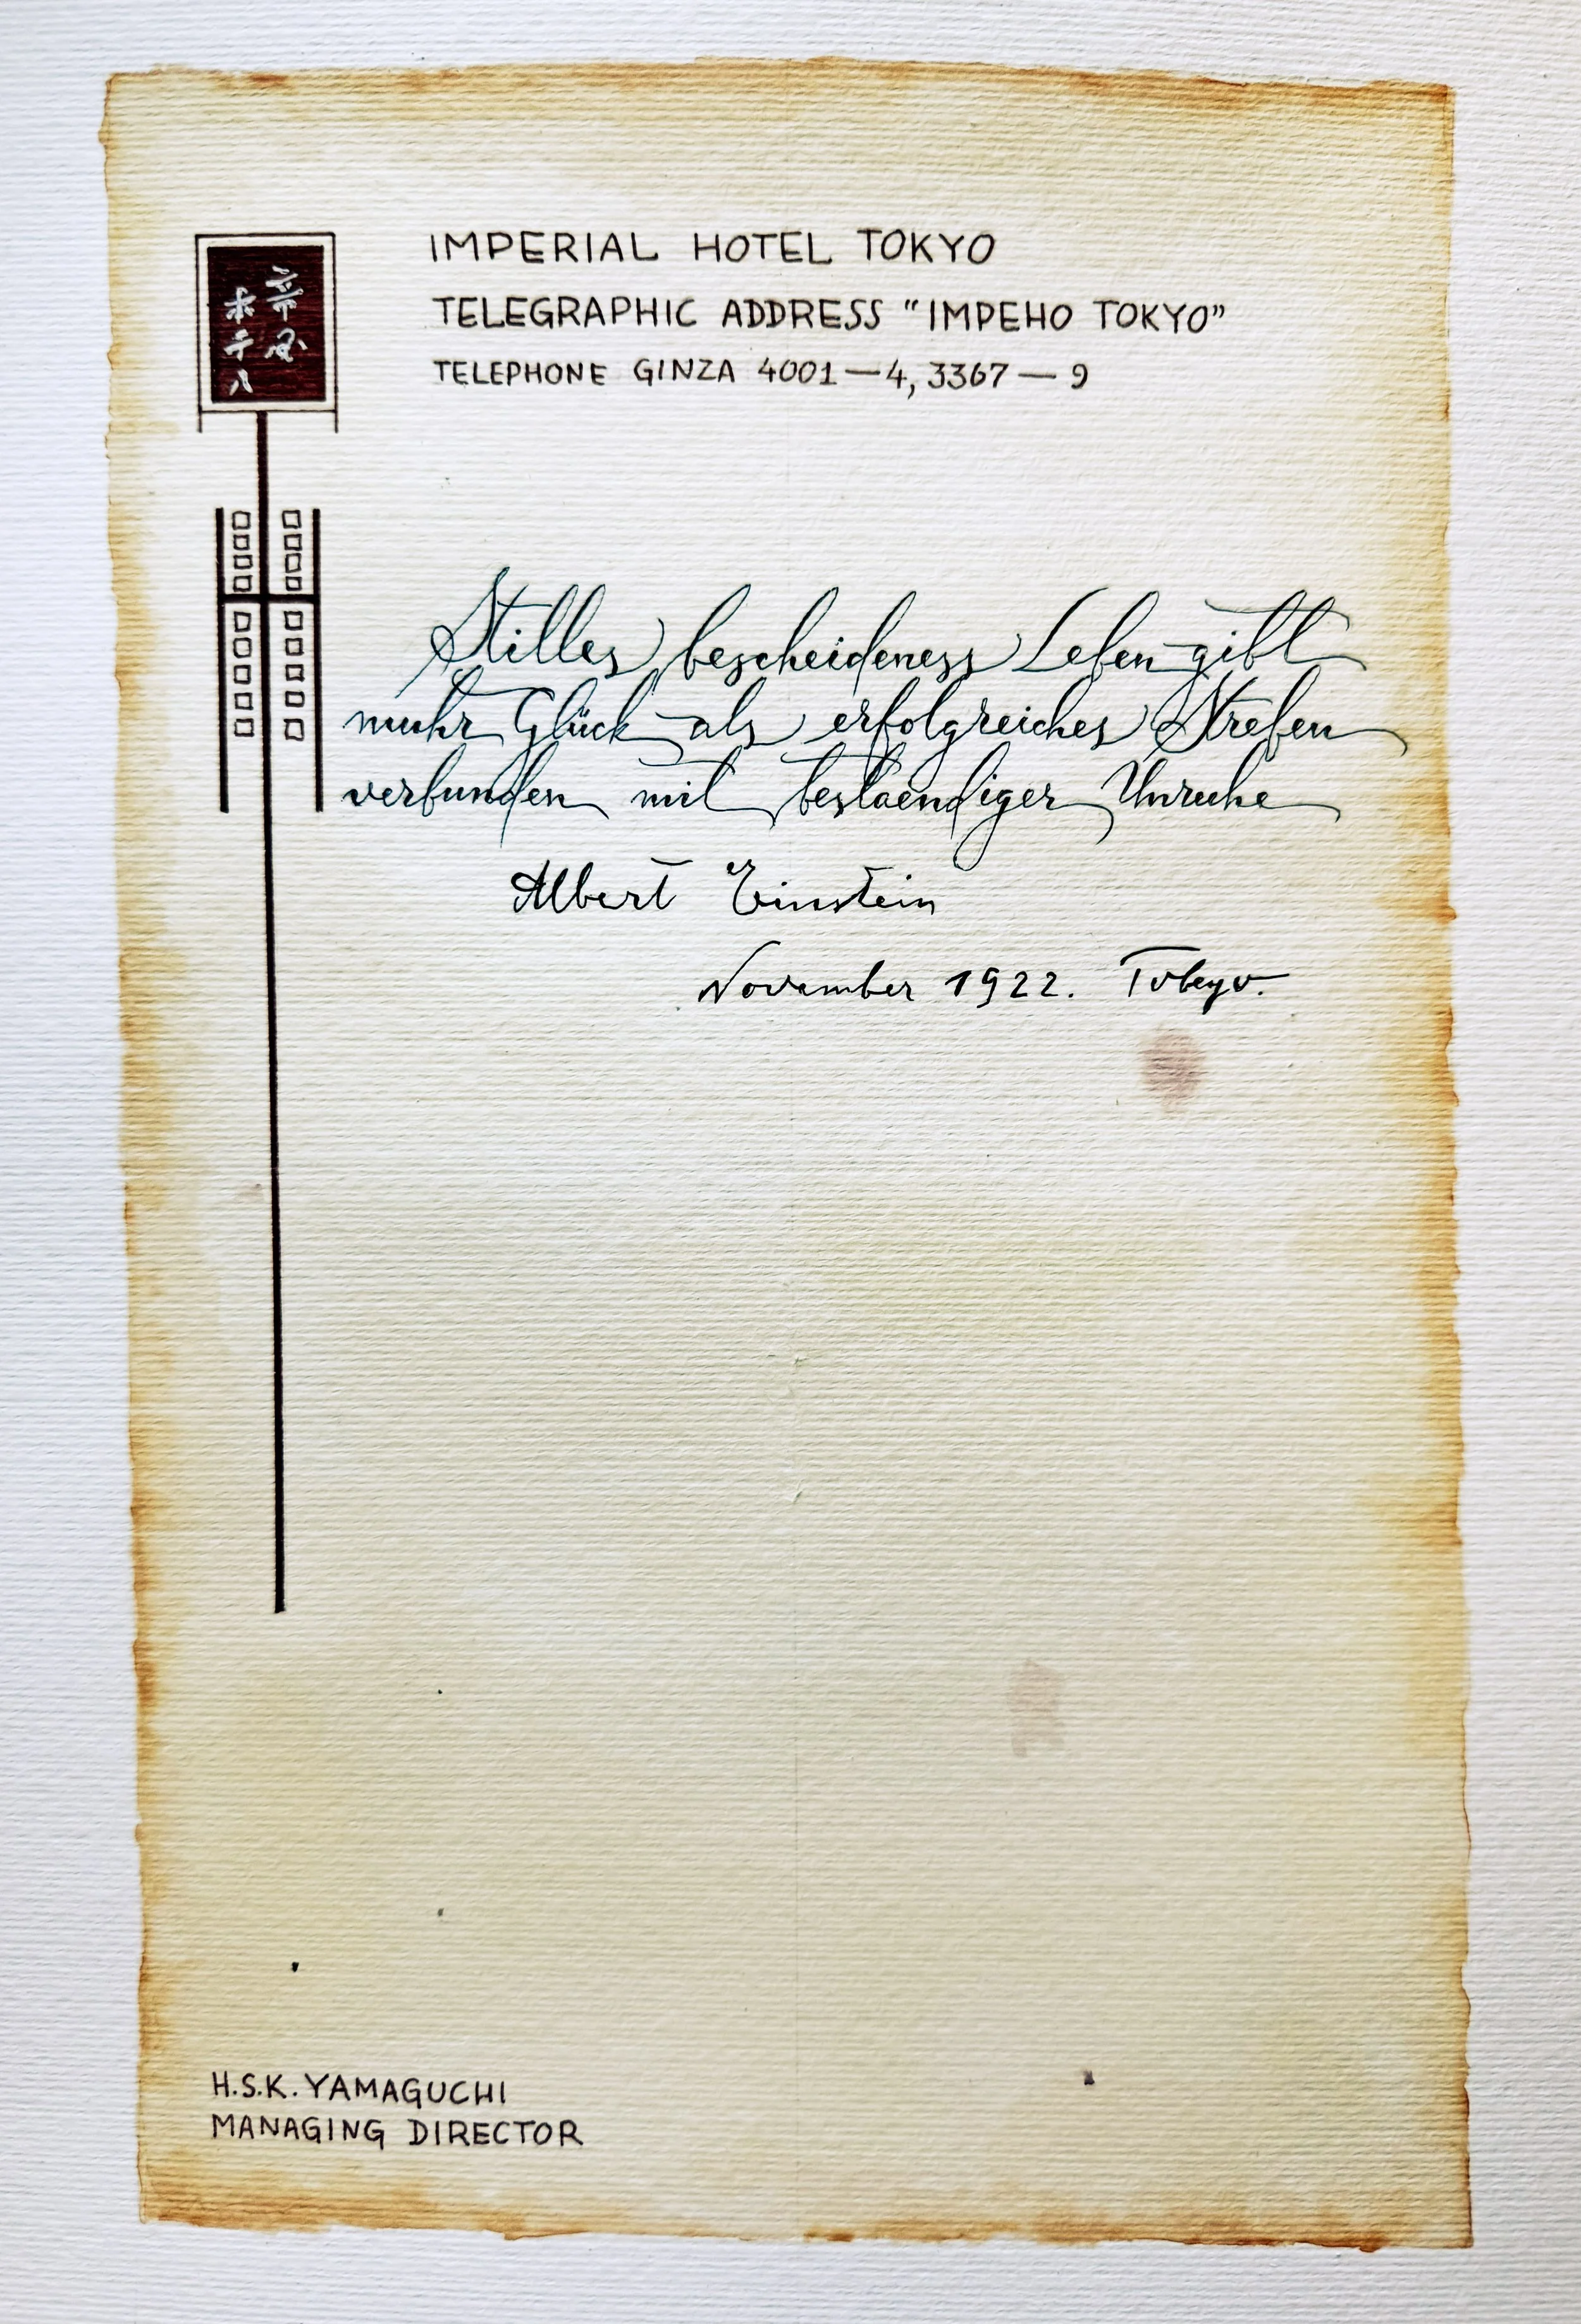 帝国
ホテル
IMPERIAL HOTEL TOKYO
TELEGRAPHIC ADDRESS "IMPEHO TOKYO"
TELEPHONE GINZA 4001—4, 3367—9
Stilles bescheideness Leben gibt
muhr Glück als erfolgreiches Streben
verbunden mit bestaendiger Unruhe
Albert Einstein
November 1922. Tokyo.
H.S.K. YAMAGUCHI
MANAGING DIRECTOR